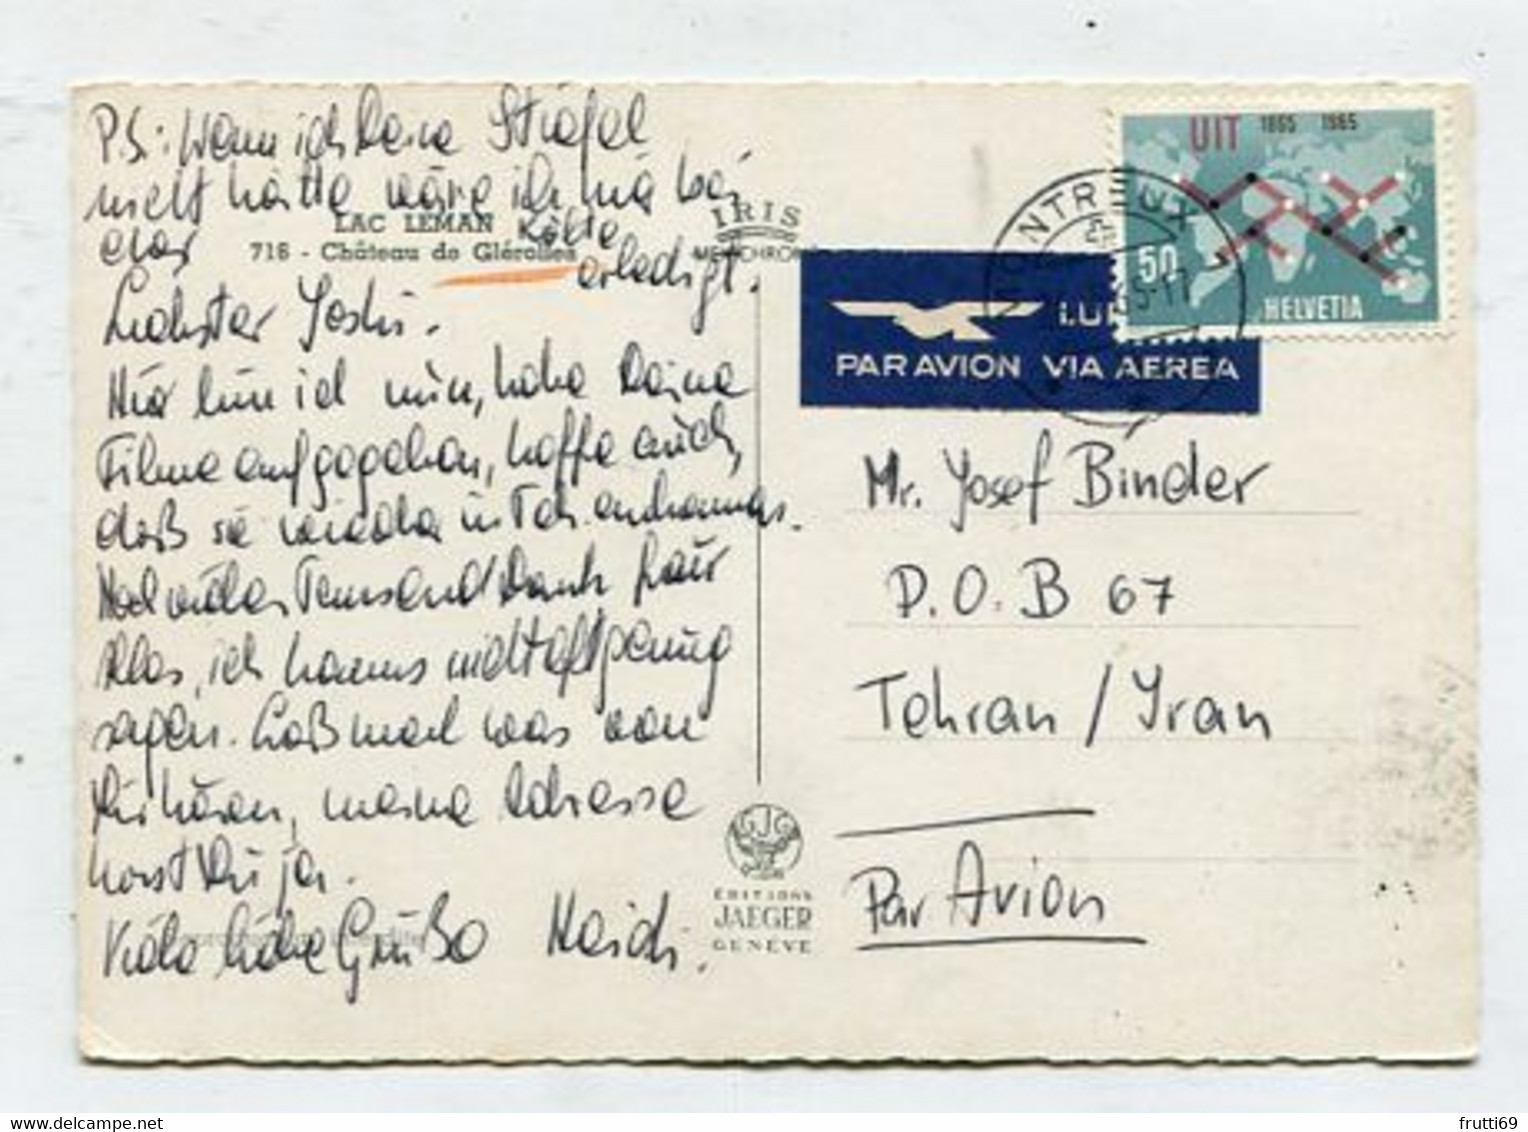 P.S.: Wenn ich Deine Stiefel
nicht hätte wäre ich hie bei
der Kälte
erledigt.
LAC LEMAN
716 - Château de Glérolles
IRIS
Liebster Joshi.
Hier bin ich nun, habe Deine
Filme aufgegeben, hoffe auch,
daß sie wieder in Teh. ankommen.
Noch vielen Tausend Dank für
alles, ich kanns nicht oft genug
sagen. Laß mal was von
Dir hören, meine Adresse
hast Du ja.
Viele liebe Grüße Heidi.
ÉDITIONS
JAEGER
GENÈVE
UIT 1865 1965
50
HELVETIA
MONTREUX
PAR AVION VIA AEREA
Mr. Josef Binder
P.O.B 67
Tehran / Iran
Par Avion
frutti69